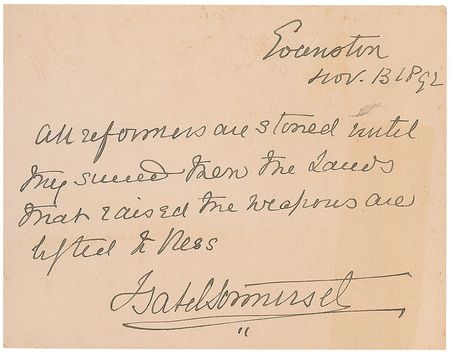 Evanston
Nov. 13 1892
All reformers are stoned until
they succeed then the hands
that raised the weapons are
lifted to bless
Isabel Somerset